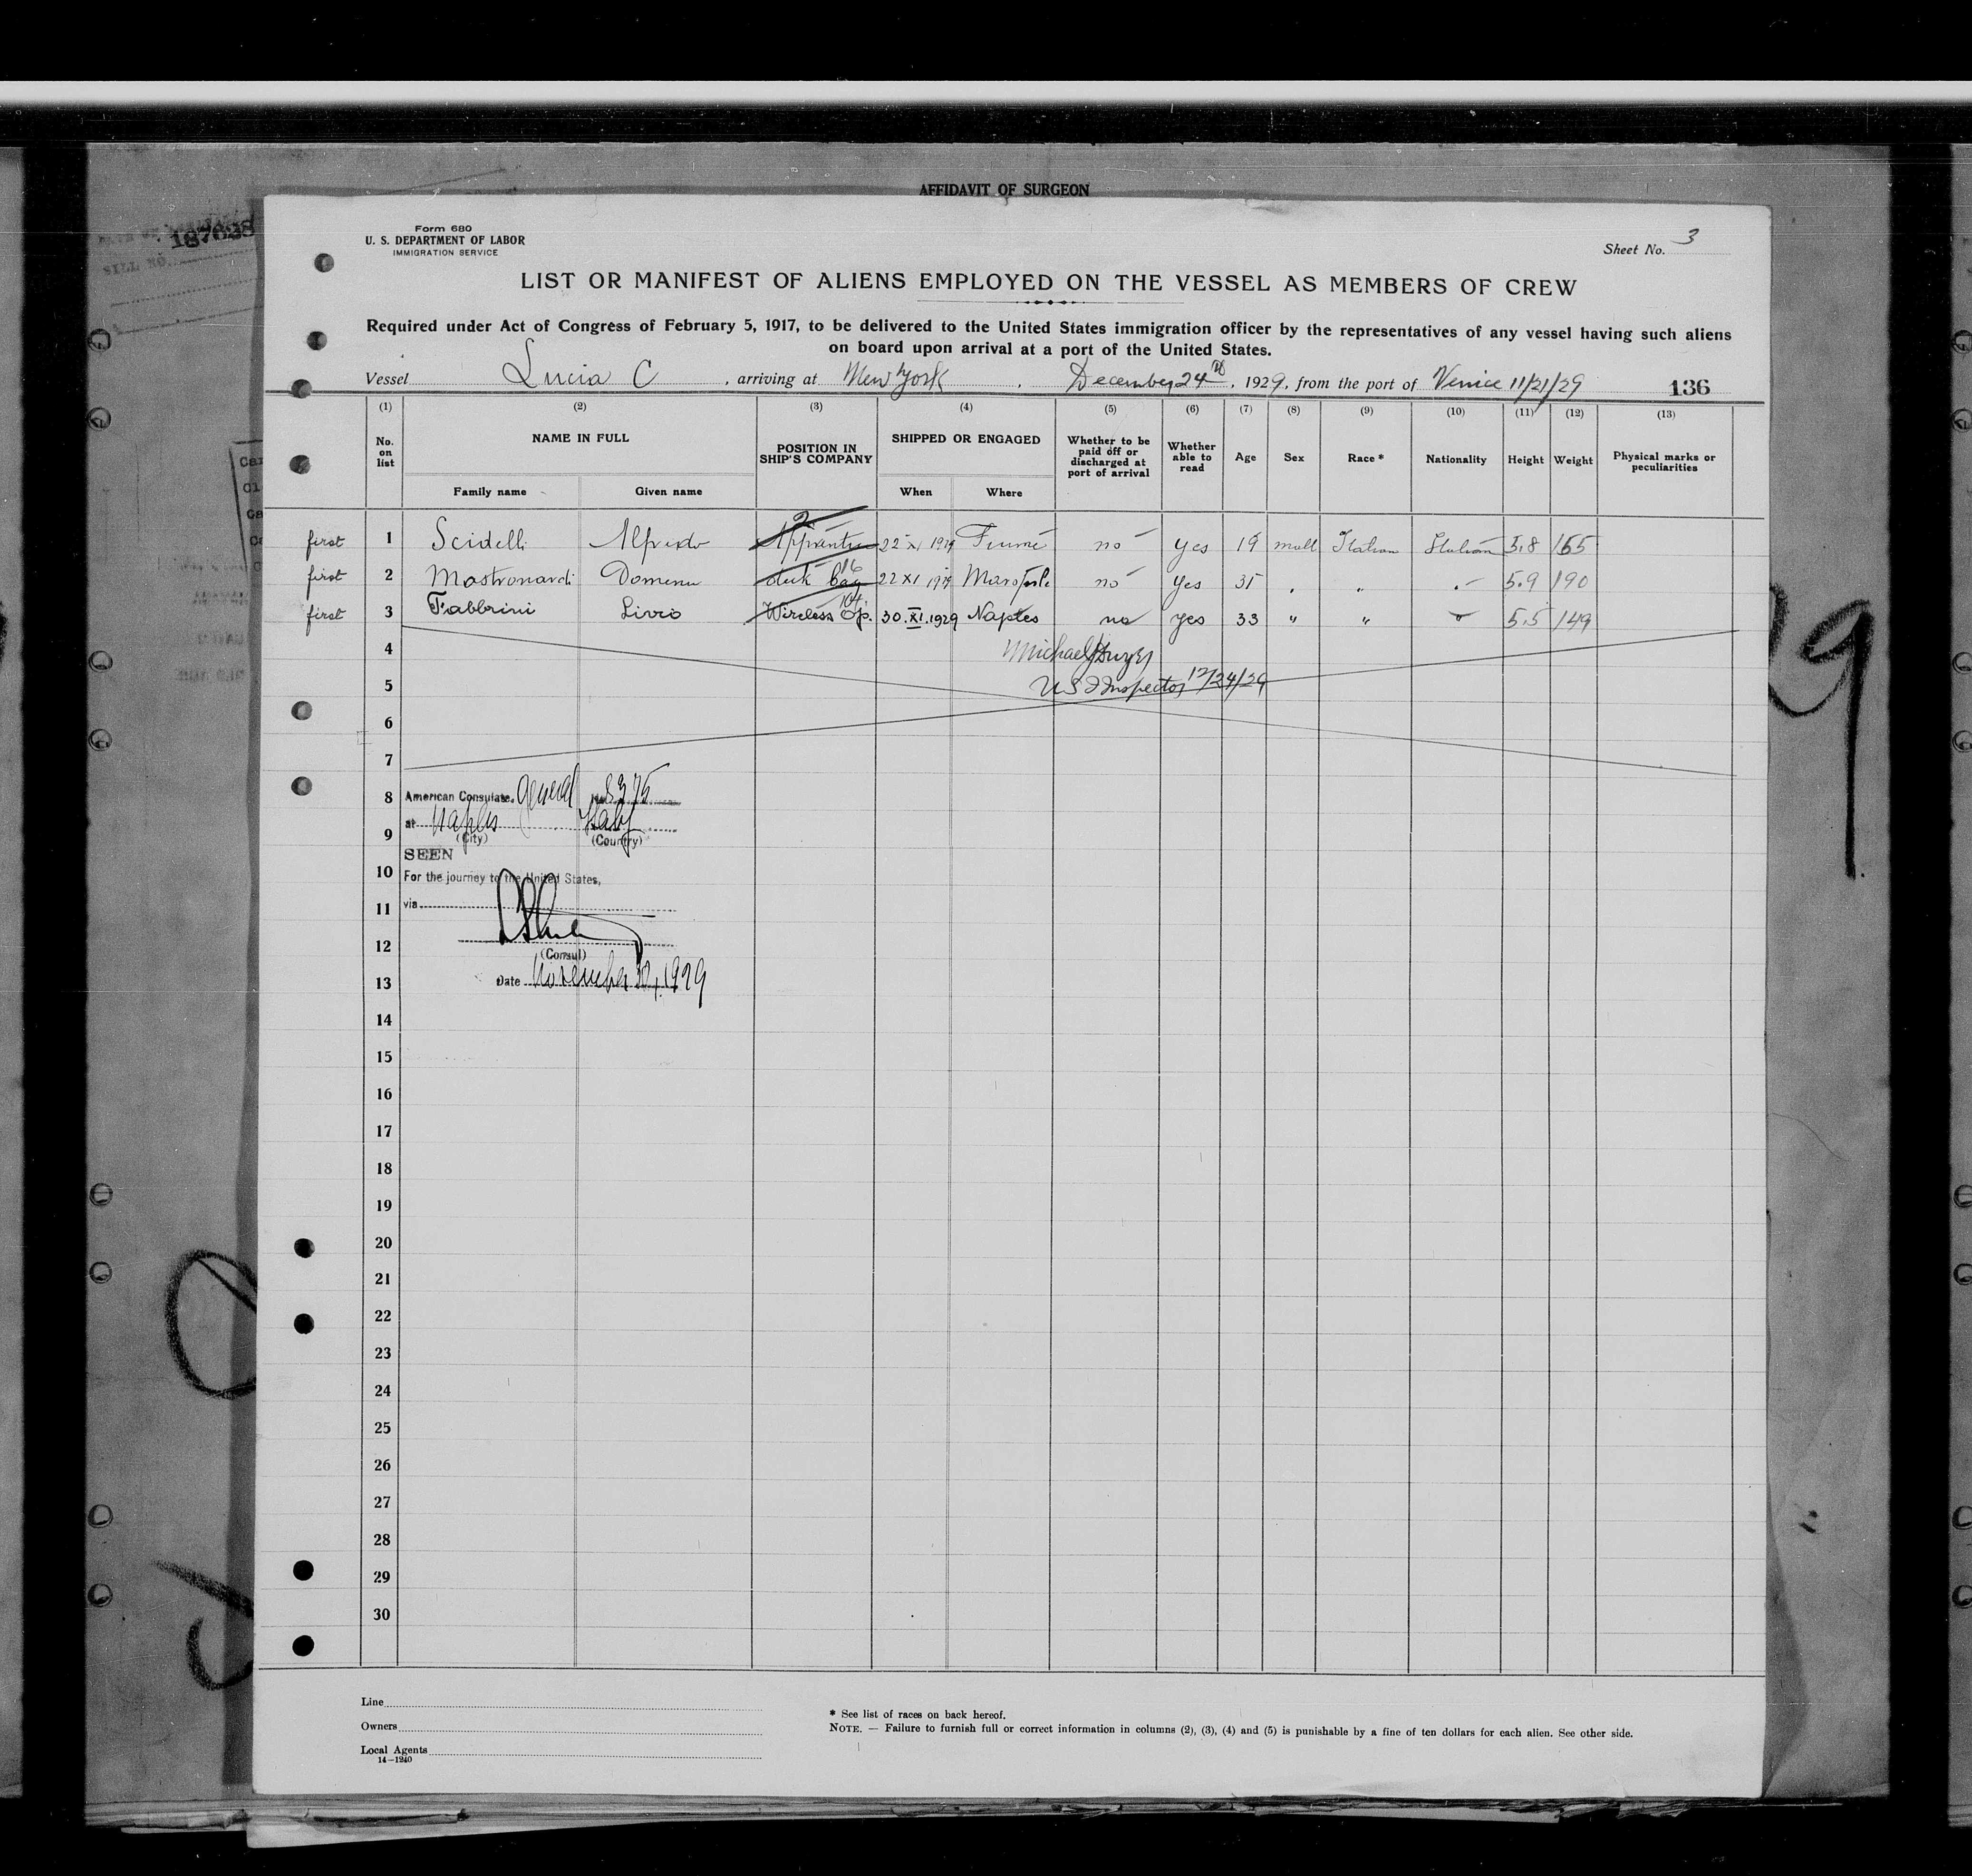 AFFIDAVIT OF SURGEON
187628
Form 680
U. S. DEPARTMENT OF LABOR
IMMIGRATION SERVICE
Sheet No. 3
LIST OR MANIFEST OF ALIENS EMPLOYED ON THE VESSEL AS MEMBERS OF CREW
Required under Act of Congress of February 5, 1917, to be delivered to the United States immigration officer by the representatives of any vessel having such aliens
on board upon arrival at a port of the United States.
Vessel Lucia C, arriving at New York, December 24th, 1929, from the port of Venice 11/21/29 136
(1) (2) (3) (4) (5) (6) (7) (8) (9) (10) (11) (12) (13)
No. on list NAME IN FULL POSITION IN SHIP'S COMPANY SHIPPED OR ENGAGED Whether to be paid off or discharged at port of arrival Whether able to read Age Sex Race * Nationality Height Weight Physical marks or peculiarities
Family name Given name When Where
first 1 Scidelli Alfredo Apprentice 2 22 XI 1929 Fiume no yes 19 mall Italian Italian 5.8 165
first 2 Mastronardi Deck boy 16 22 XI 1929 no yes 31 " " 5.9 190
first 3 Fabbrini Livio Wireless Op. 30.XI.1929 Naples no yes 33 " " " 5.5 149
4 Michael
5 US Inspector 12/24/29
6
7
8 American Consulate General
at Naples Italy
9 (City) (Country)
SEEN
10 For the journey to the United States,
11 via
12
(Consul)
13 Date November 30, 1929
14
15
16
17
18
19
20
21
22
23
24
25
26
27
28
29
30
Line
Owners
Local Agents
14—1240
* See list of races on back hereof.
NOTE. — Failure to furnish full or correct information in columns (2), (3), (4) and (5) is punishable by a fine of ten dollars for each alien. See other side.